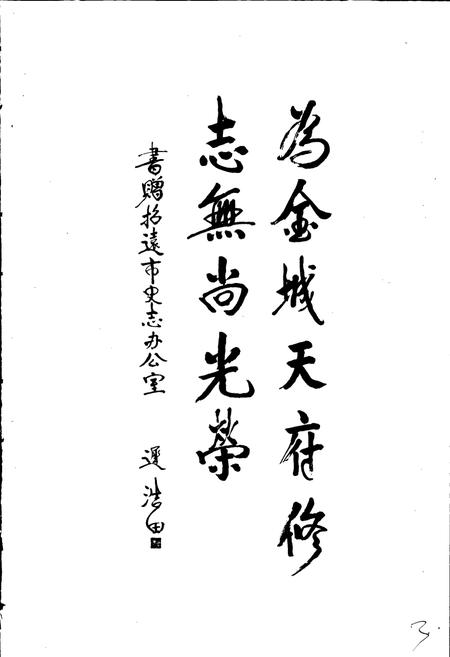 為金城天府修
志無尚光榮
書贈招遠市史志办公室
遲浩田